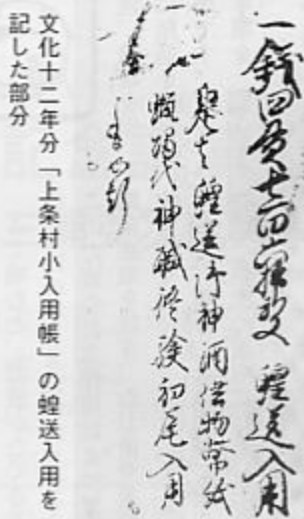 一銭四貫七百拾文 蝗送入用
是者蝗送御神酒供物幣紙
蝋燭代神職修験初尾入用
文化十二年分「上条村小入用帳」の蝗送入用を
記した部分